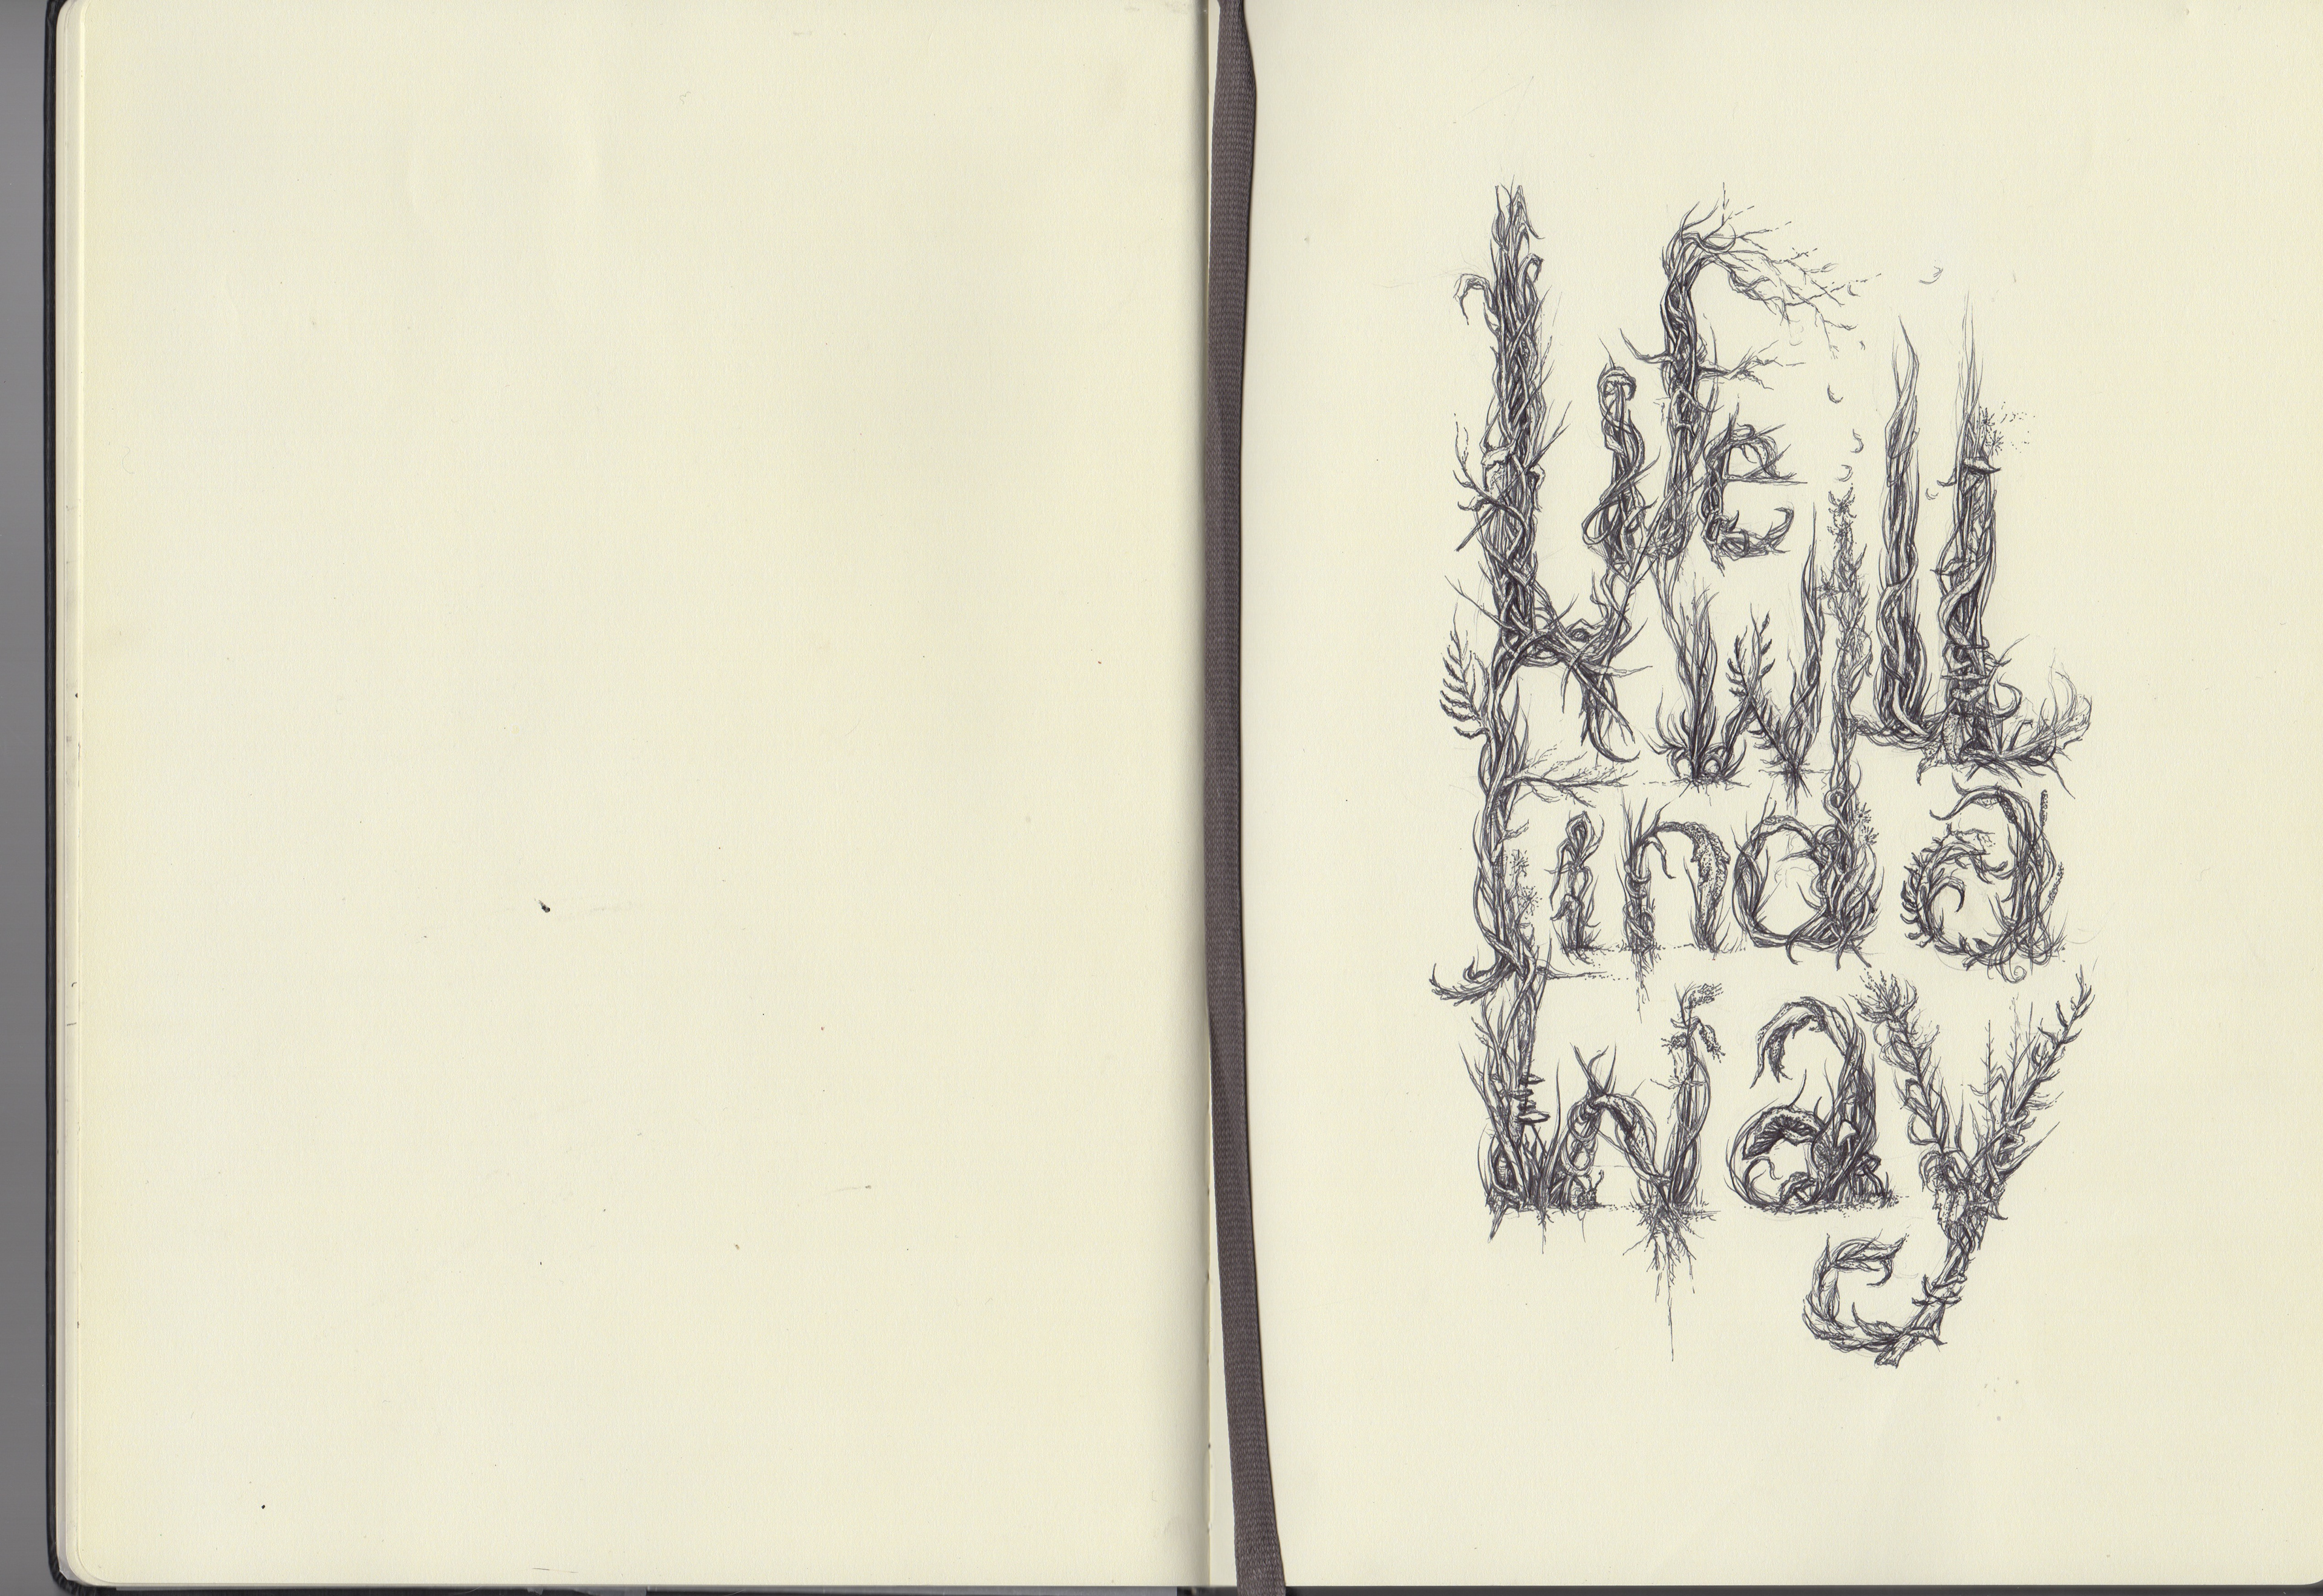 Life
will
find a
way